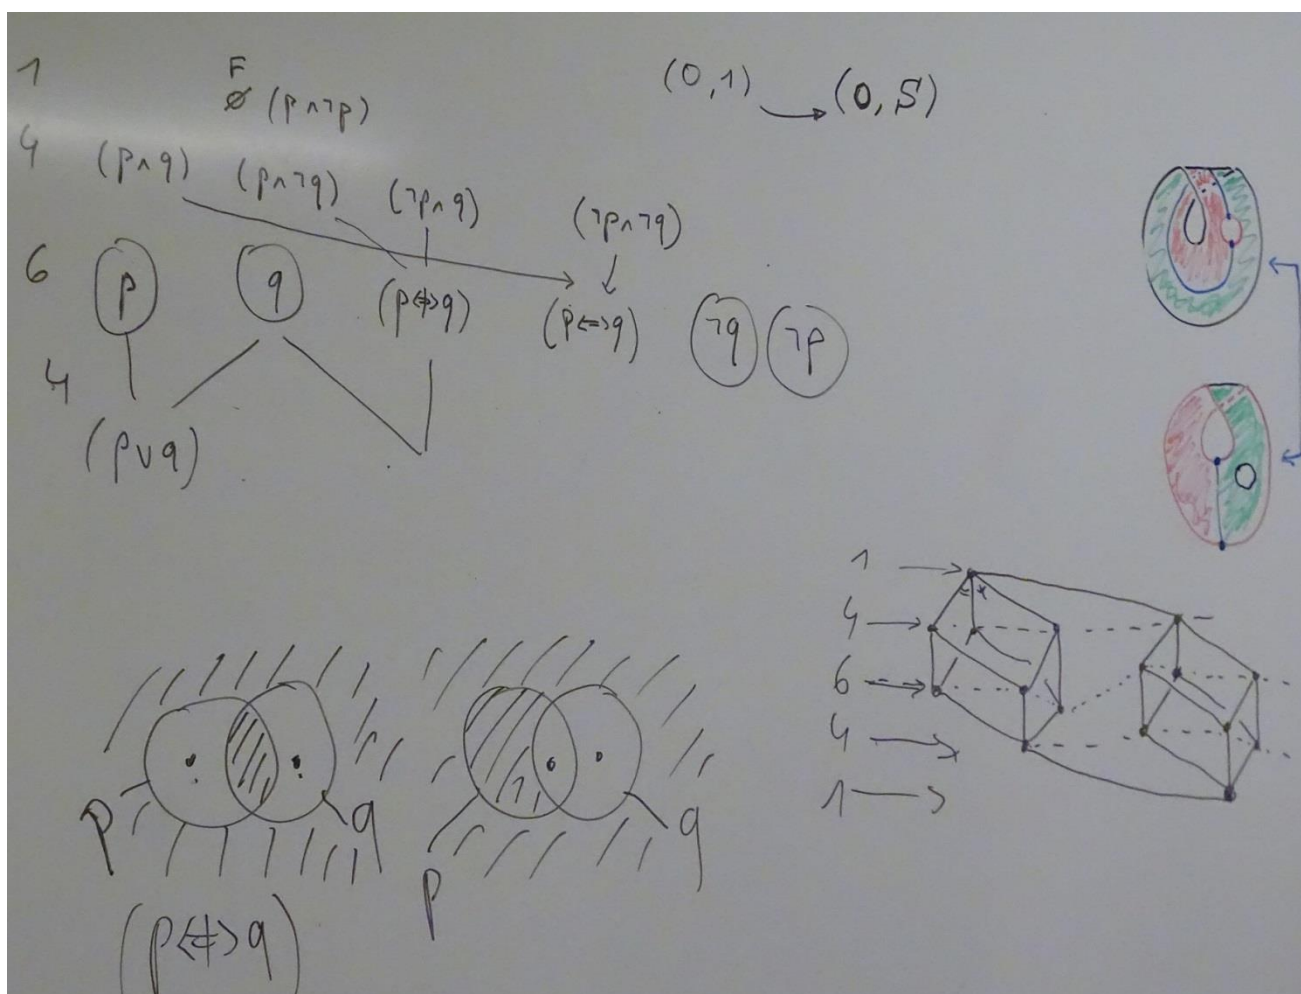 1
F
∅ (p∧¬p)
(0,1) → (0,S)
4 (p∧q) (p∧¬q) (¬p∧q) (¬p∧¬q)
6 p q (p<≠>q) (p<=>q) ¬q ¬p
4
(p∨q)
1 →
4 →
6 →
4 →
1 →
p q
p q
(p<≠>q)